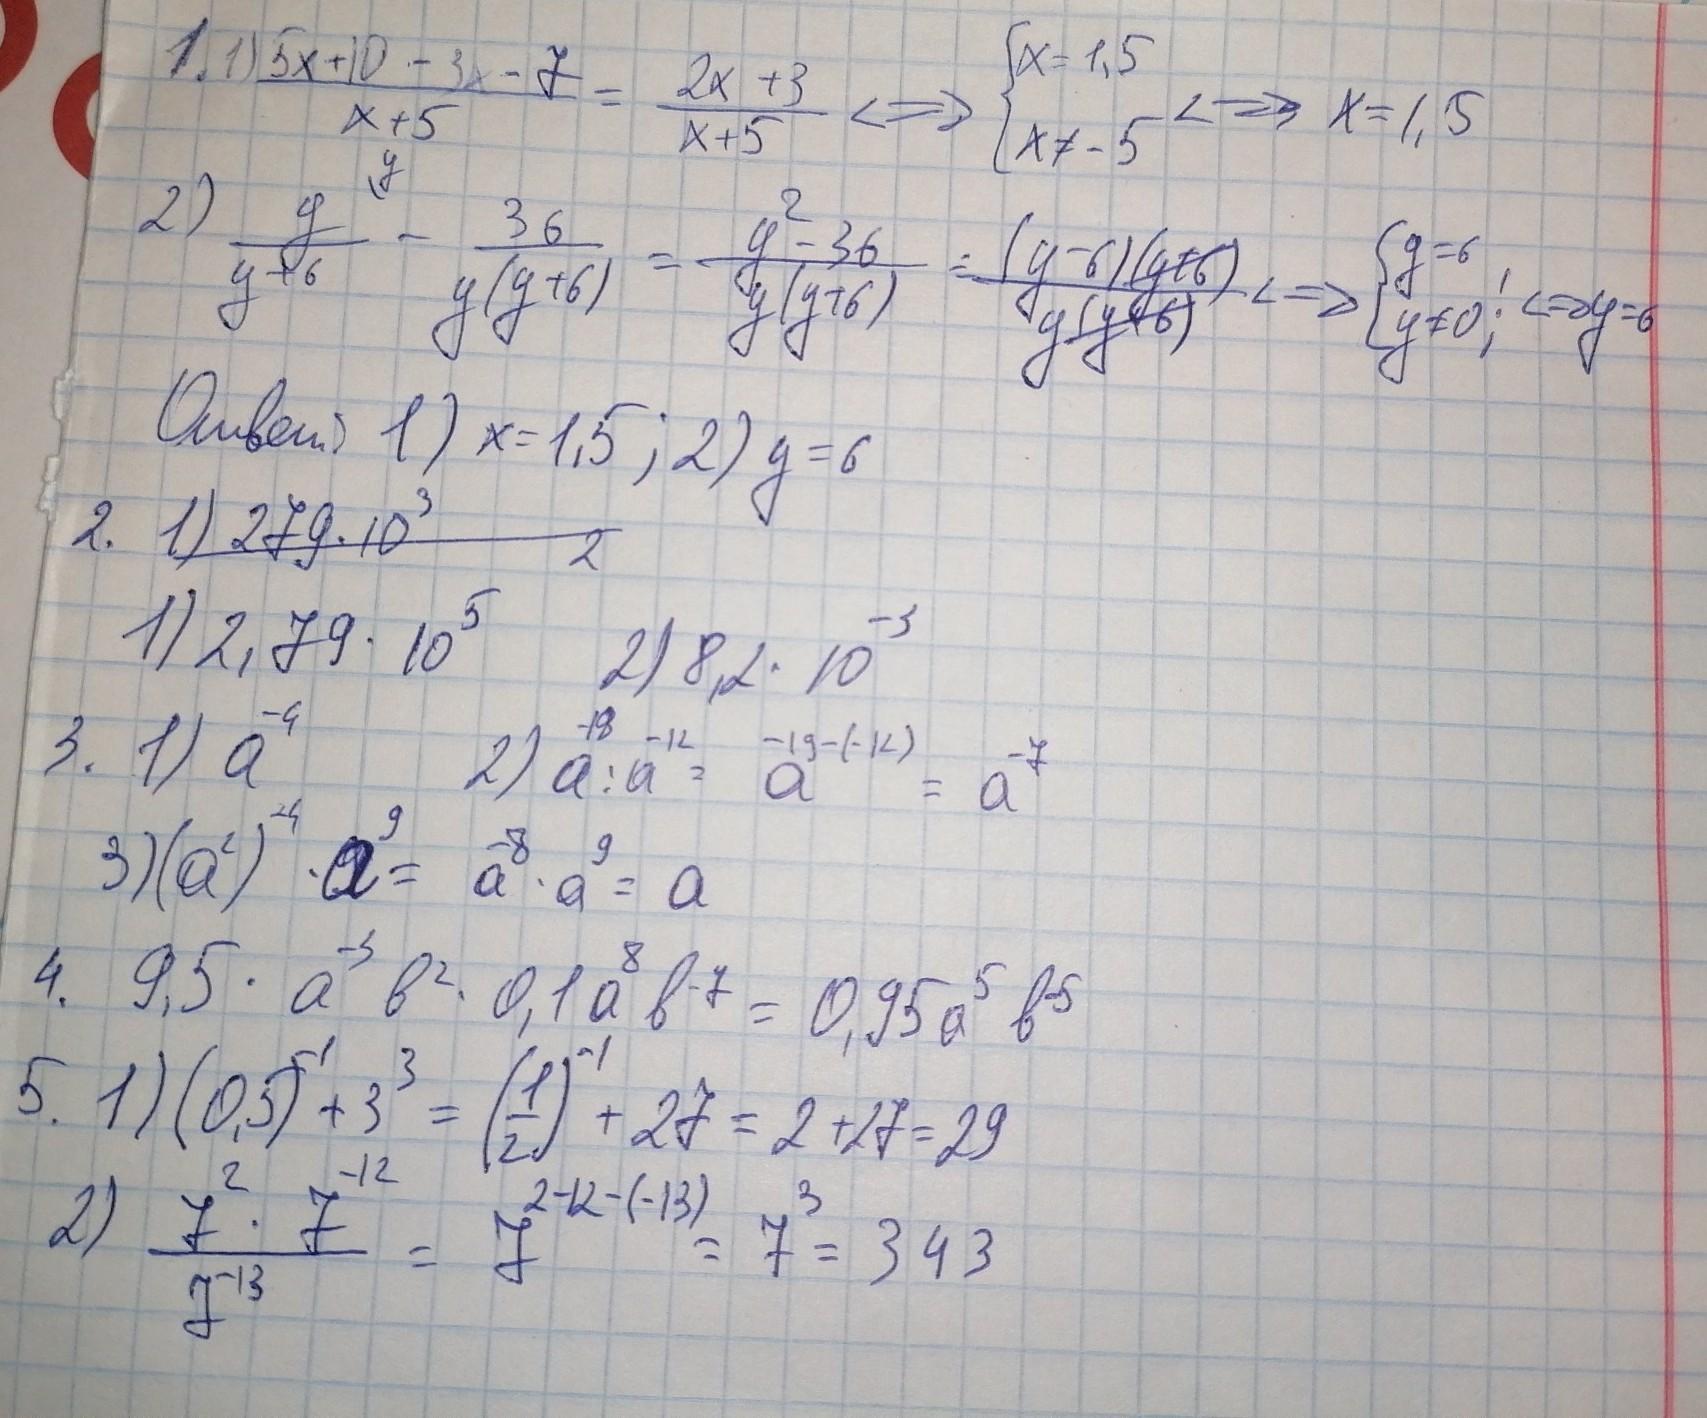 1. 1) (5x+10-3x-7)/(x+5) = (2x+3)/(x+5) <=> { x=1,5 x≠-5 <=> x=1,5
2) y/(y+6) (y - 36/(y(y+6)) = (y²-36)/(y(y+6)) = (y-6)(y+6)/(y(y+6)) <=> { y=6 y≠0; <=> y=6
Ответ: 1) x=1,5; 2) y=6
2. 1) 279·10³ 2
1) 2,79·10⁵ 2) 8,2·10⁻³
3. 1) a⁻⁴ 2) a⁻¹⁹:a⁻¹² = a⁻¹⁹⁻⁽⁻¹²⁾ = a⁻⁷
3) (a²)⁻⁴·a⁹ = a⁻⁸·a⁹ = a
4. 9,5·a⁻³b²·0,1a⁸b⁻⁷ = 0,95a⁵b⁻⁵
5. 1) (0,5)⁻¹+3³ = (1/2)⁻¹+27 = 2+27=29
2) (7²·7⁻¹²)/7⁻¹³ = 7²⁻¹²⁻⁽⁻¹³⁾ = 7³ = 343